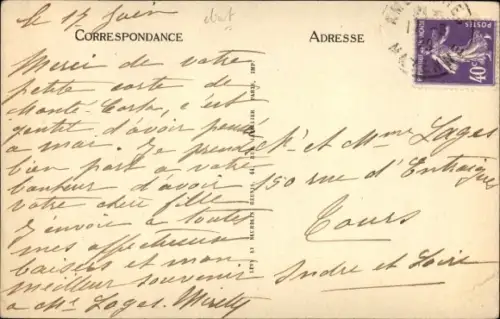 le 17 Juin
CORRESPONDANCE
Merci de votre
petite carte de
Monté-Carlo, c'est
gentil d'avoir pensé
a moi. Je prends
bien part a votre
bonheur d'avoir
votre chère fille
J'envoie a toutes
mes affectueux
baisers et mon
meilleur souvenir
a Mr Lagas. Mirelly
ADRESSE
Mr et Mme Lagas
150 rue d'Entraigues
Tours
Indre et Loire
40c